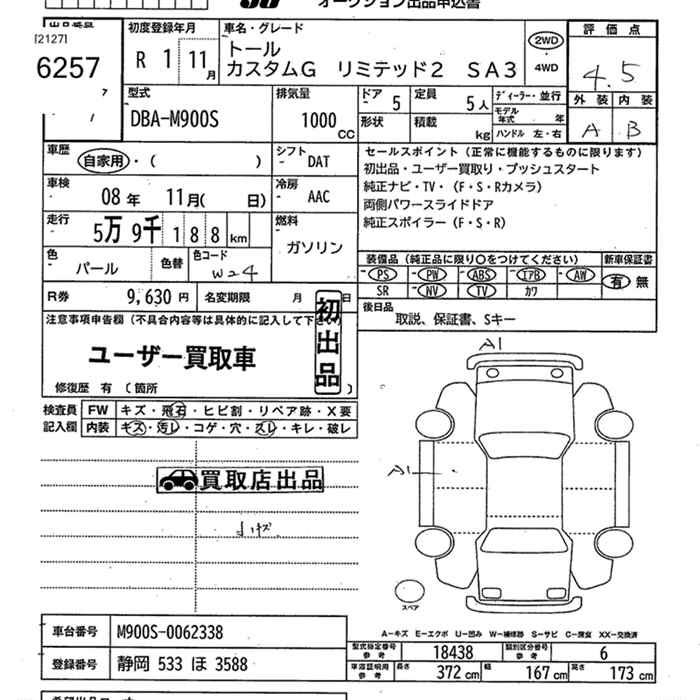 オークション出品申込書
出品番号
[2127]
6257
初度登録年月
R 1 11月
車名・グレード
トール
カスタムG リミテッド2 SA3
2WD
4WD
評価点
4.5
外装 内装
A B
型式
DBA-M900S
排気量
1000 CC
ドア 5
形状
定員 5人
積載 kg
ディーラー・並行
モデル年式 年
ハンドル 左・右
車歴
自家用・( )
シフト DAT
車検
08年 11月( 日)
冷房 AAC
走行
5万 9千 1 8 8 km
燃料
ガソリン
色
パール
色替
色コード
W24
セールスポイント（正常に機能するものに限ります）
初出品・ユーザー買取り・プッシュスタート
純正ナビ・TV・（F・S・Rカメラ）
両側パワースライドドア
純正スポイラー（F・S・R）
装備品（純正品に限り〇をつけてください）
新車保証書
PS PW ABS エアB AW
SR NV TV カワ
有 無
R券 9,630 円
名変期限 月 日
後日品
取説、保証書、Sキー
注意事項申告欄（不具合内容等は具体的に記入して下さい）
ユーザー買取車
初出品
修復歴 有 〔箇所 〕
検査員
記入欄
FW キズ・飛石・ヒビ割・リペア跡・X要
内装 キズ・汚レ・コゲ・穴・スレ・キレ・破レ
買取店出品
A1
A1
スペア
A－キズ E－エクボ U－凹み W－補修跡 S－サビ C－腐食 XX－交換済
車台番号 M900S-0062338
登録番号 静岡 533 ほ 3588
型式指定番号 参考 18438
類別区分番号 参考 6
車庫証明用 参考
長さ 372 cm 幅 167 cm 高さ 173 cm